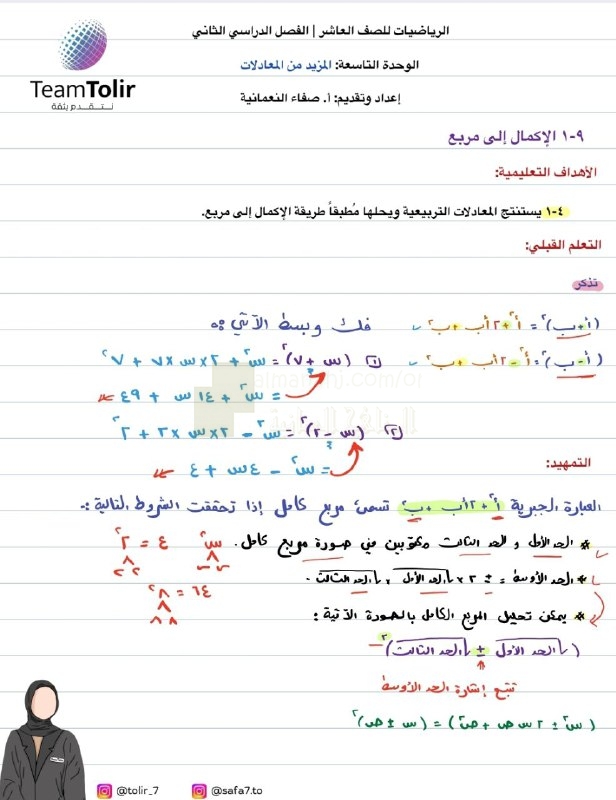 الرياضيات للصف العاشر | الفصل الدراسي الثاني
الوحدة التاسعة: المزيد من المعادلات
إعداد وتقديم: أ. صفاء النعمانية
TeamTolir
نتقدم بثقة
٩-١ الإكمال إلى مربع
الأهداف التعليمية:
٤-١ يستنتج المعادلات التربيعية ويحلها مُطبقاً طريقة الإكمال إلى مربع.
التعلم القبلي:
تذكر
(أ+ب)² = أ² + ٢أب + ب²
(أ-ب)² = أ² - ٢أب + ب²
فك وبسط الآتي:
١) (س + ٧)² = س² + ٢×س×٧ + ٧²
= س² + ١٤س + ٤٩
٢) (س - ٢)² = س² - ٢×س×٢ + ٢²
= س² - ٤س + ٤
almanahj.com/om
المناهج العمانية
التمهيد:
العبارة الجبرية أ² + ٢أب + ب² تسمى مربع كامل إذا تحققت الشروط التالية :-
* الحد الأول و الحد الثالث مكتوبين في صورة مربع كامل.
س² ٤ = ٢²
٢ ٢
* الحد الأوسط = ± ٢ × √الحد الأول × √الحد الثالث.
٦٤ = ٨²
٨ ٨
* يمكن تحليل المربع الكامل بالصورة الآتية :
(√الحد الأول ± √الحد الثالث)²
تتبع إشارة الحد الأوسط
(س² ± ٢ س ص + ص²) = (س ± ص)²
@tolir_7
@safa7.to